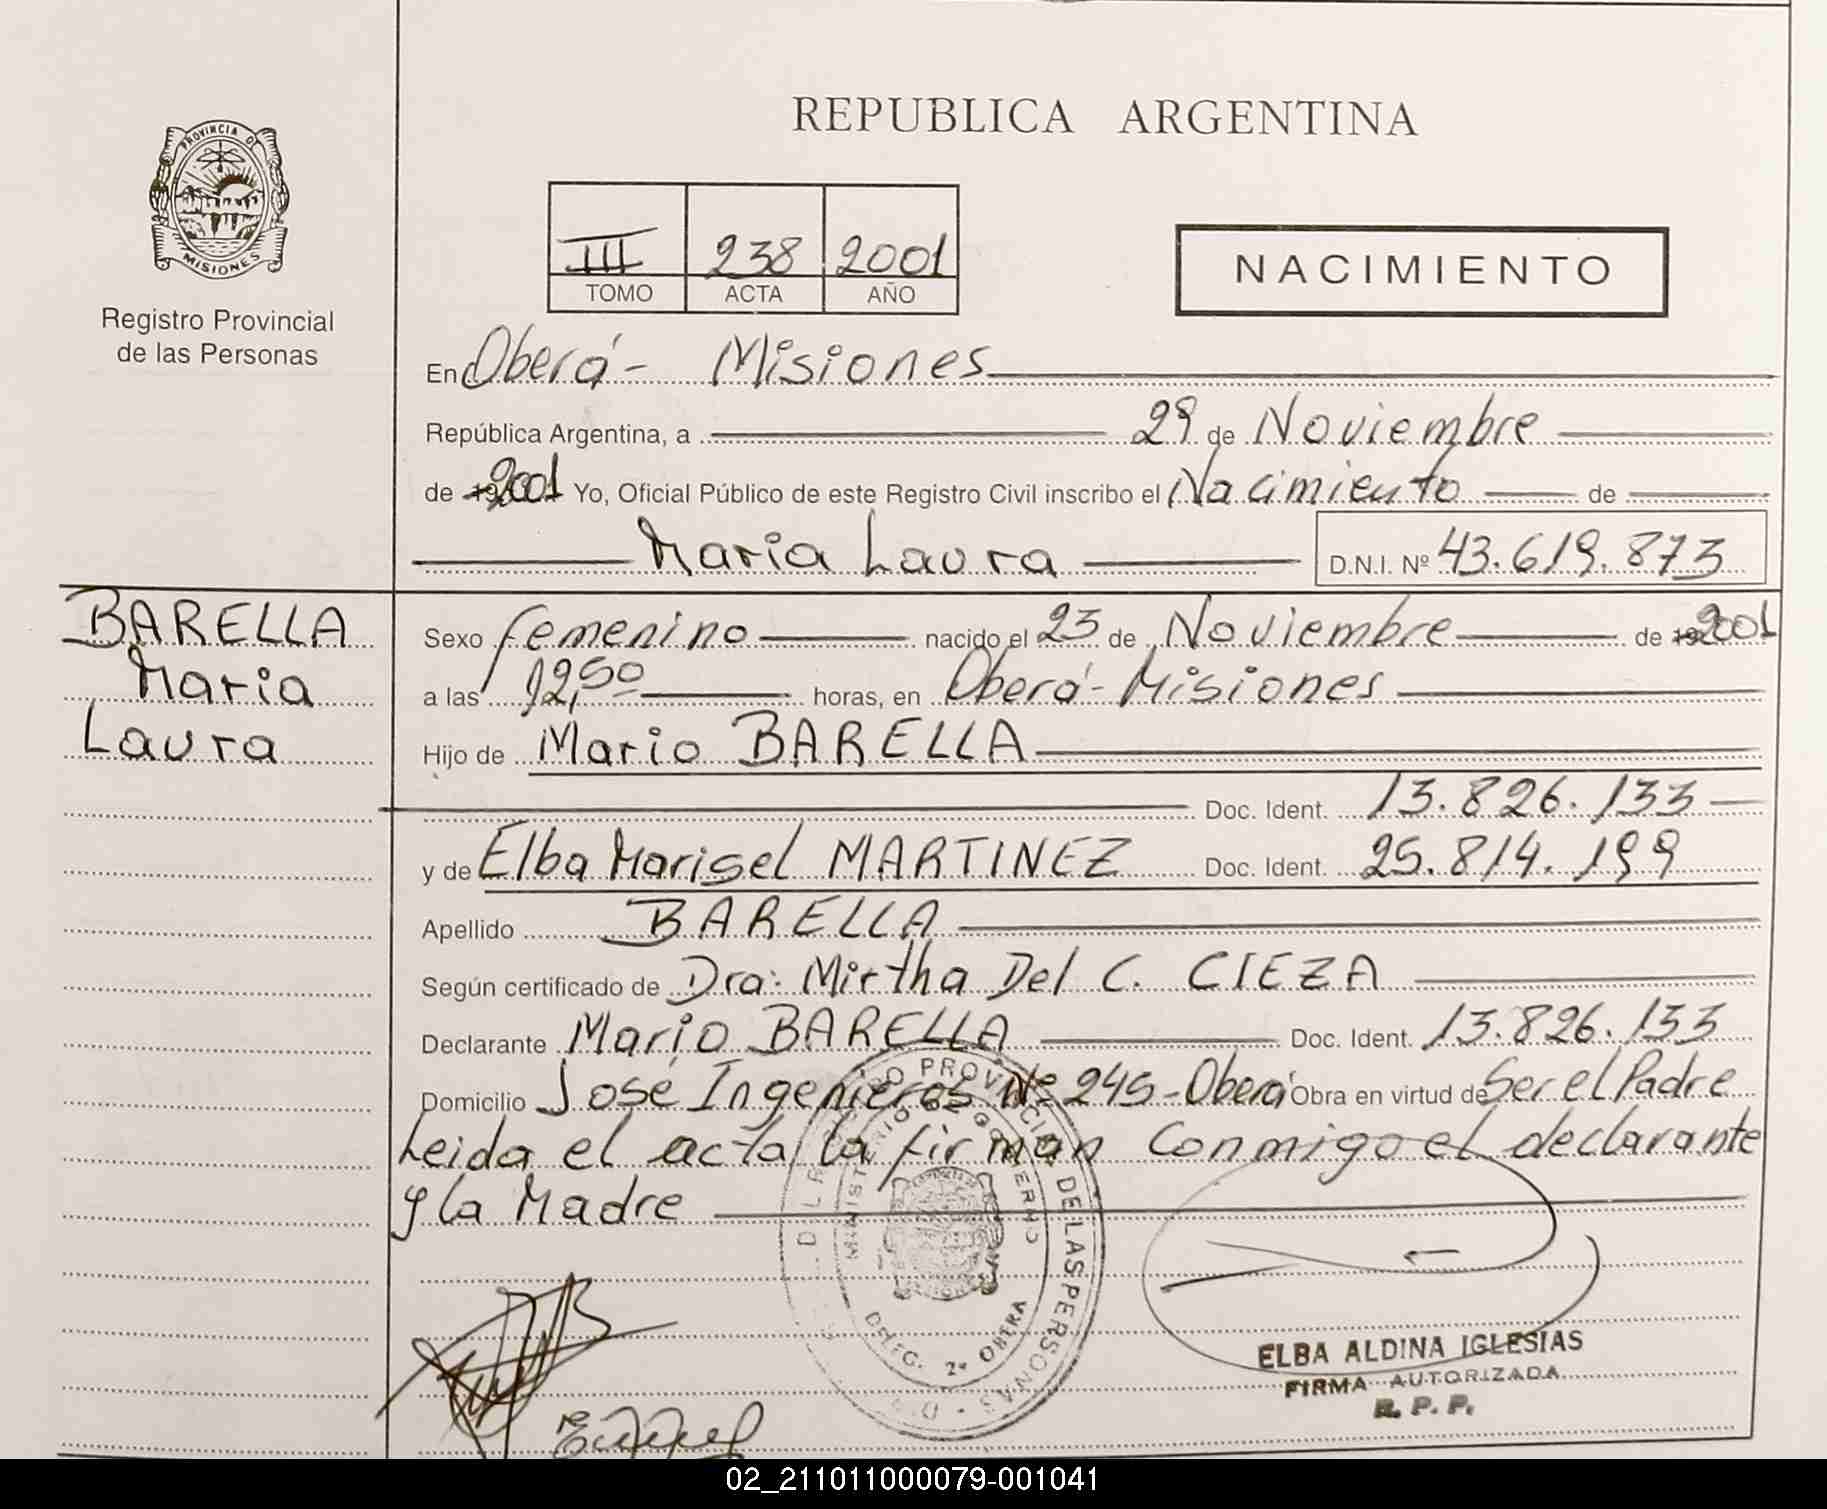 REPUBLICA ARGENTINA
PROVINCIA DE
MISIONES
Registro Provincial
de las Personas
III 238 2001
TOMO ACTA AÑO
NACIMIENTO
En Oberá- Misiones
República Argentina, a 29 de Noviembre
de 19 2001 Yo, Oficial Público de este Registro Civil inscribo el Nacimiento de
Maria Laura D.N.I. Nº 43.619.873
BARELLA
Maria
Laura
Sexo femenino nacido el 23 de Noviembre de 19 2001
a las 12,50 horas, en Oberá- Misiones
Hijo de Mario BARELLA
Doc. Ident. 13.826.133
y de Elba Marisel MARTINEZ Doc. Ident. 25.814.199
Apellido BARELLA
Según certificado de Dra: Mirtha Del C. CIEZA
Declarante Mario BARELLA Doc. Ident. 13.826.133
Domicilio José Ingenieros Nº 245-Oberá Obra en virtud de Ser el Padre
Leida el acta la firman Conmigo el declarante
y la Madre
PROVINCIAL DE LAS PERSONAS
MINISTERIO DE GOBIERNO
DELEG. 2ª OBERA
ELBA ALDINA IGLESIAS
FIRMA AUTORIZADA
R. P. P.
02_211011000079-001041